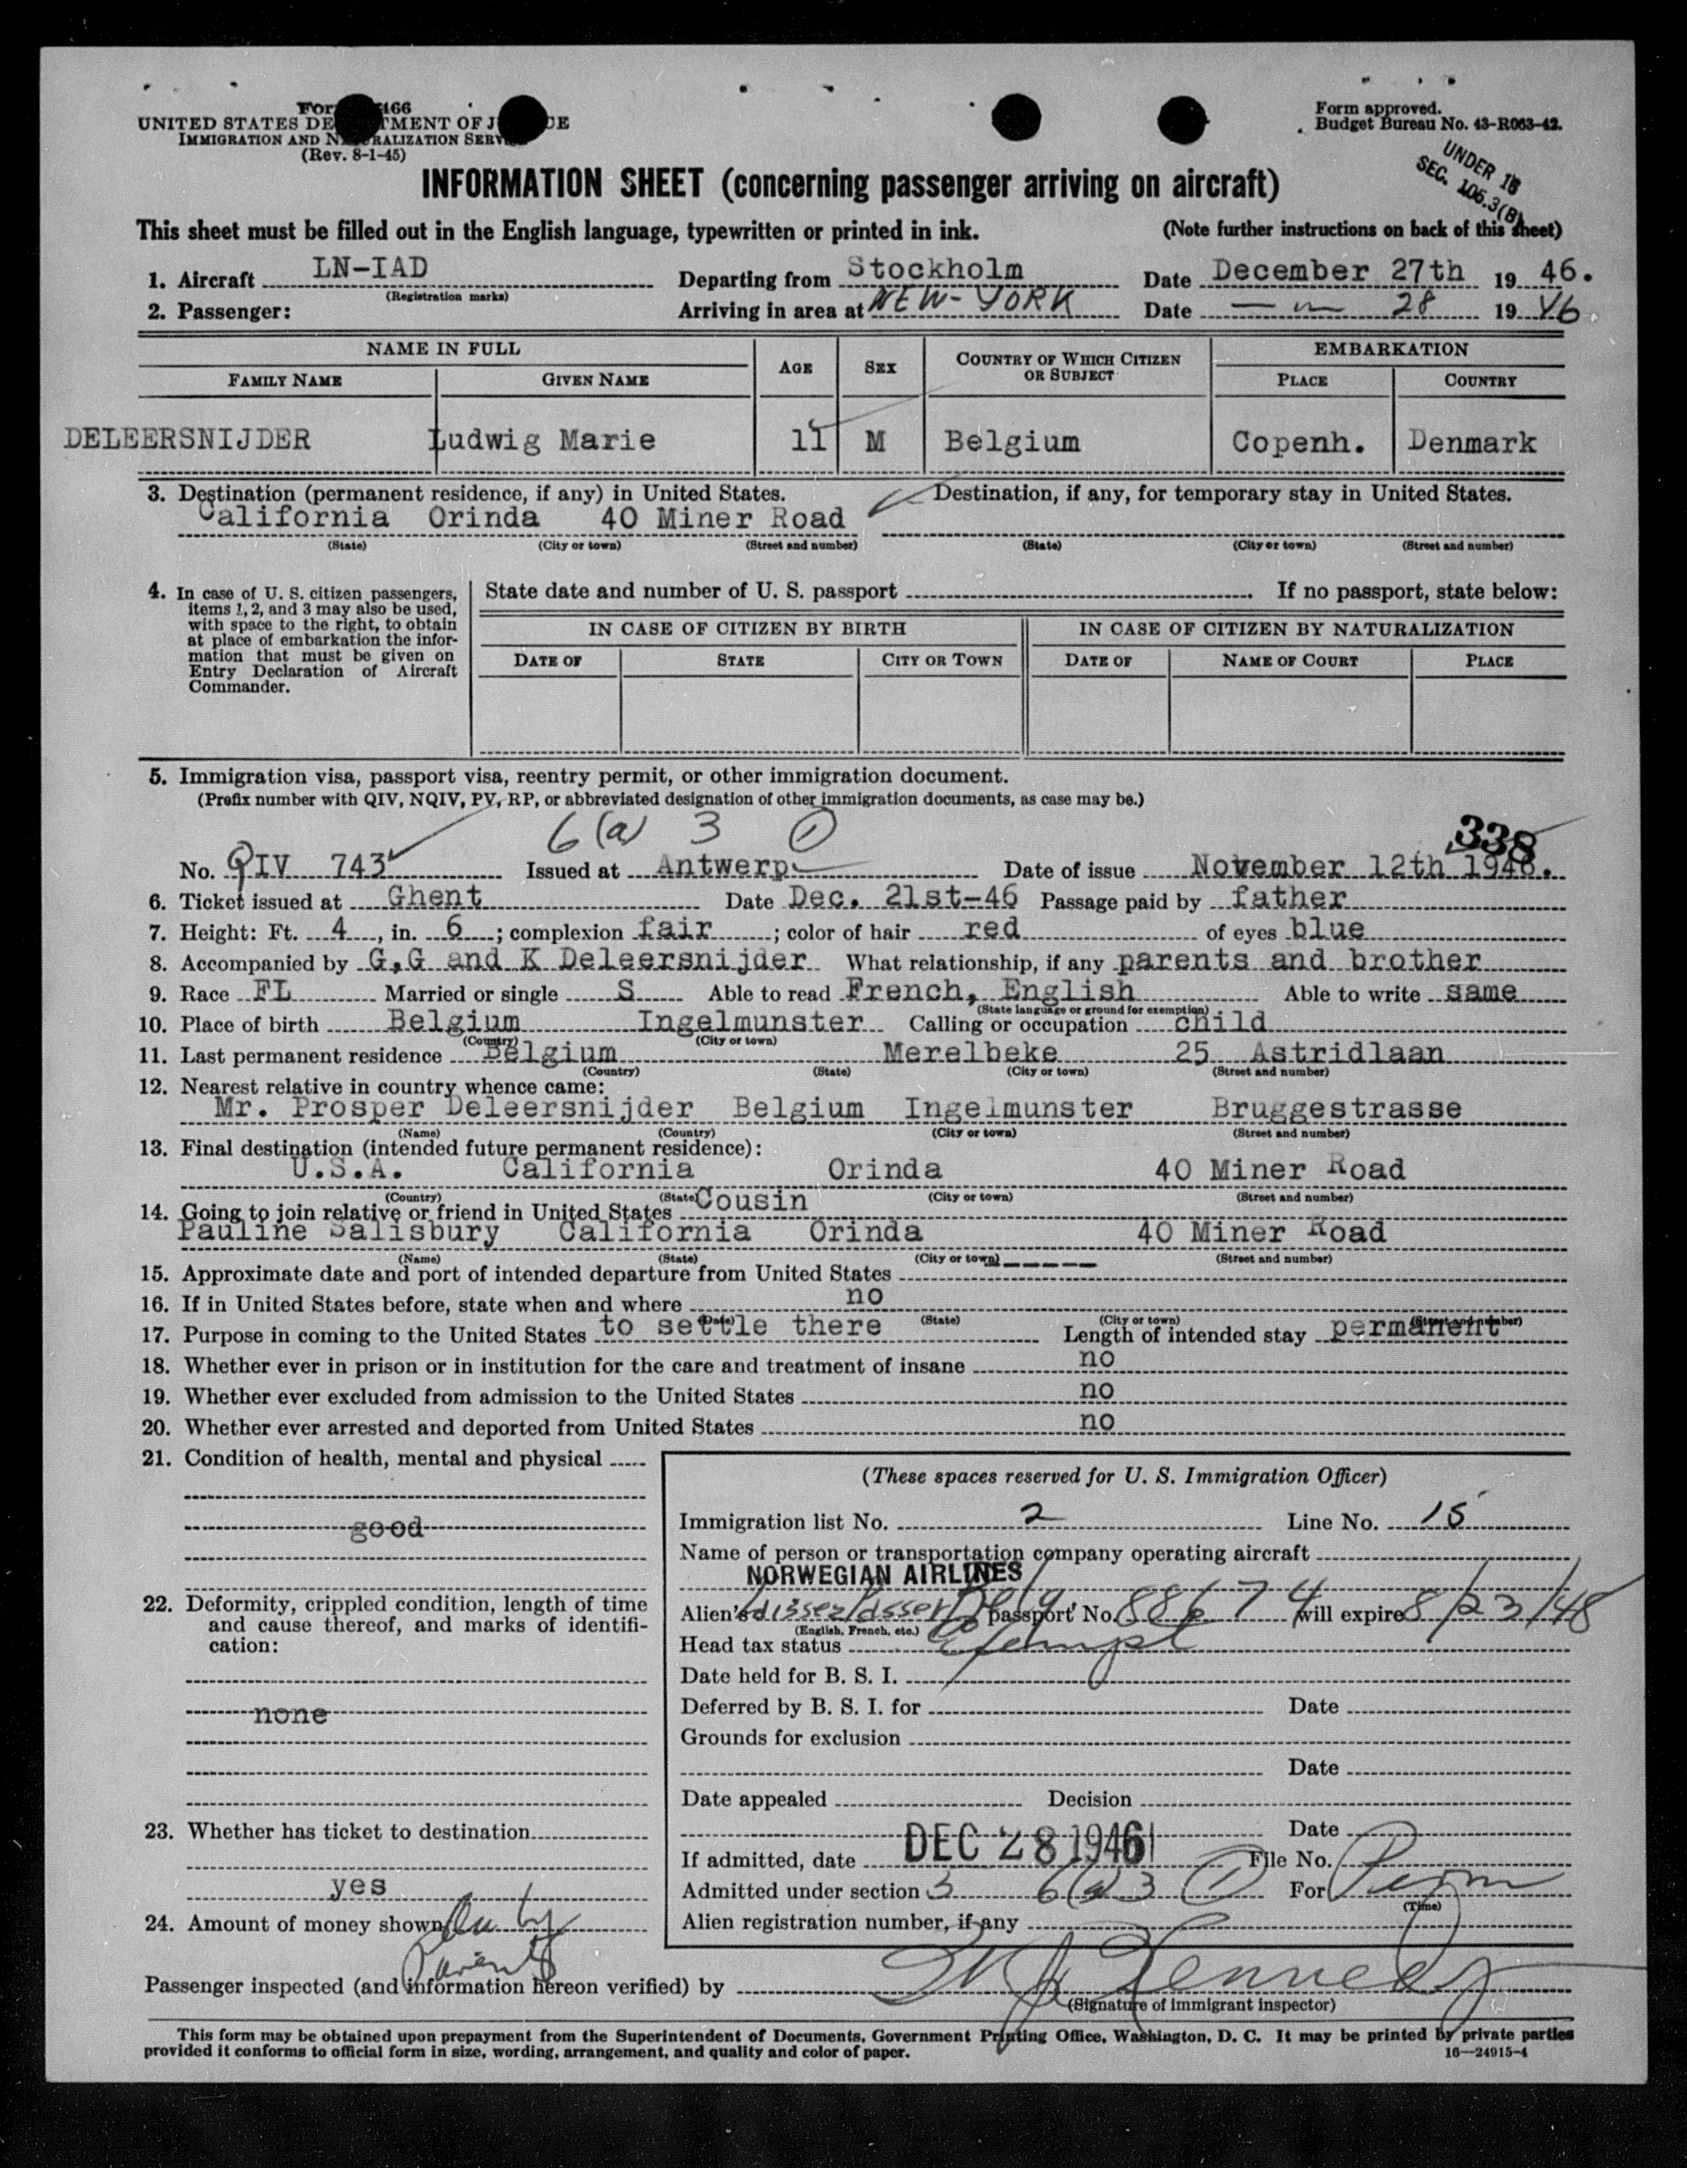 Form I-466
UNITED STATES DEPARTMENT OF JUSTICE
IMMIGRATION AND NATURALIZATION SERVICE
(Rev. 8-1-45)
Form approved.
Budget Bureau No. 43-R063-42.
UNDER 16
SEC. 106.3(B)
INFORMATION SHEET (concerning passenger arriving on aircraft)
This sheet must be filled out in the English language, typewritten or printed in ink. (Note further instructions on back of this sheet)
1. Aircraft LN-IAD Departing from Stockholm Date December 27th 19 46.
(Registration marks)
2. Passenger: Arriving in area at NEW-YORK Date — " — 28 19 46
NAME IN FULL AGE SEX COUNTRY OF WHICH CITIZEN OR SUBJECT EMBARKATION
FAMILY NAME GIVEN NAME PLACE COUNTRY
DELEERSNIJDER Ludwig Marie 11 M Belgium Copenh. Denmark
3. Destination (permanent residence, if any) in United States. Destination, if any, for temporary stay in United States.
California Orinda 40 Miner Road
(State) (City or town) (Street and number) (State) (City or town) (Street and number)
4. In case of U. S. citizen passengers, items 1, 2, and 3 may also be used, with space to the right, to obtain at place of embarkation the information that must be given on Entry Declaration of Aircraft Commander.
State date and number of U. S. passport If no passport, state below:
IN CASE OF CITIZEN BY BIRTH IN CASE OF CITIZEN BY NATURALIZATION
DATE OF STATE CITY OR TOWN DATE OF NAME OF COURT PLACE
5. Immigration visa, passport visa, reentry permit, or other immigration document.
(Prefix number with QIV, NQIV, PV, RP, or abbreviated designation of other immigration documents, as case may be.)
6 (a) 3 (1) 338
No. QIV 743 Issued at Antwerp Date of issue November 12th 1946.
6. Ticket issued at Ghent Date Dec. 21st-46 Passage paid by father
7. Height: Ft. 4, in. 6; complexion fair; color of hair red of eyes blue
8. Accompanied by G,G and K Deleersnijder What relationship, if any parents and brother
9. Race FL Married or single S Able to read French, English Able to write same
(State language or ground for exemption)
10. Place of birth Belgium Ingelmunster Calling or occupation child
(Country) (City or town)
11. Last permanent residence Belgium Merelbeke 25 Astridlaan
(Country) (State) (City or town) (Street and number)
12. Nearest relative in country whence came:
Mr. Prosper Deleersnijder Belgium Ingelmunster Bruggestrasse
(Name) (Country) (City or town) (Street and number)
13. Final destination (intended future permanent residence):
U.S.A. California Orinda 40 Miner Road
(Country) (State) (City or town) (Street and number)
14. Going to join relative or friend in United States Cousin
Pauline Salisbury California Orinda 40 Miner Road
(Name) (State) (City or town) (Street and number)
15. Approximate date and port of intended departure from United States -----
16. If in United States before, state when and where no
(Date) (State) (City or town) (Street and number)
17. Purpose in coming to the United States to settle there Length of intended stay permanent
18. Whether ever in prison or in institution for the care and treatment of insane no
19. Whether ever excluded from admission to the United States no
20. Whether ever arrested and deported from United States no
21. Condition of health, mental and physical
good
22. Deformity, crippled condition, length of time and cause thereof, and marks of identification:
none
23. Whether has ticket to destination
yes
24. Amount of money shown
Parents
(These spaces reserved for U. S. Immigration Officer)
Immigration list No. 2 Line No. 15
Name of person or transportation company operating aircraft
NORWEGIAN AIRLINES
Alien's Belg passport No. 88674 will expire 8/23/48
(English, French, etc.)
Head tax status Exempt
Date held for B. S. I.
Deferred by B. S. I. for Date
Grounds for exclusion
Date
Date appealed Decision
Date
If admitted, date DEC 28 1946 File No.
Admitted under section 3 6(a)3 (1) For Perm
(Time)
Alien registration number, if any
Passenger inspected (and information hereon verified) by Kennedy
(Signature of immigrant inspector)
This form may be obtained upon prepayment from the Superintendent of Documents, Government Printing Office, Washington, D. C. It may be printed by private parties
provided it conforms to official form in size, wording, arrangement, and quality and color of paper. 16—24915-4